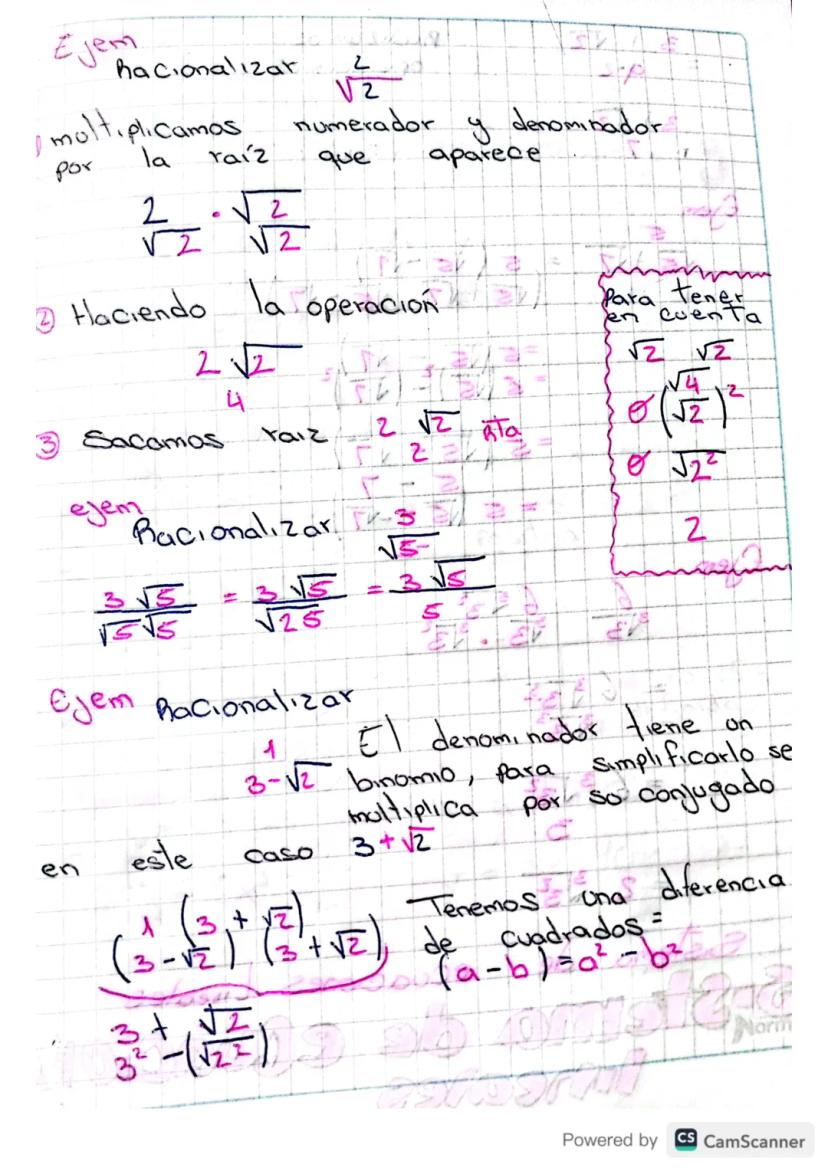 Ejem
Racionalizar 2/√2
multiplicamos numerador y denominador
por la raíz que aparece
2/√2 · √2/√2
② Haciendo la operación
2√2
4
③ Sacamos raiz 2√2/2 Rta
Para tener
en cuenta
√2 √2
√4
o (√2)²
o √2²
2
ejem
Racionalizar 3/√5
3√5/√5√5 = 3√5/√25 = 3√5/5
Ejem Racionalizar
1/3-√2 El denominador tiene un
binomio, para simplificarlo se
multiplica por so conjugado
en este caso 3+√2
1 (3 + √2)
(3-√2) (3+√2)
Tenemos una diferencia
de cuadrados =
(a-b)=a²-b²
3 + √2
3² -(√2²)
Norm
Powered by CS CamScanner